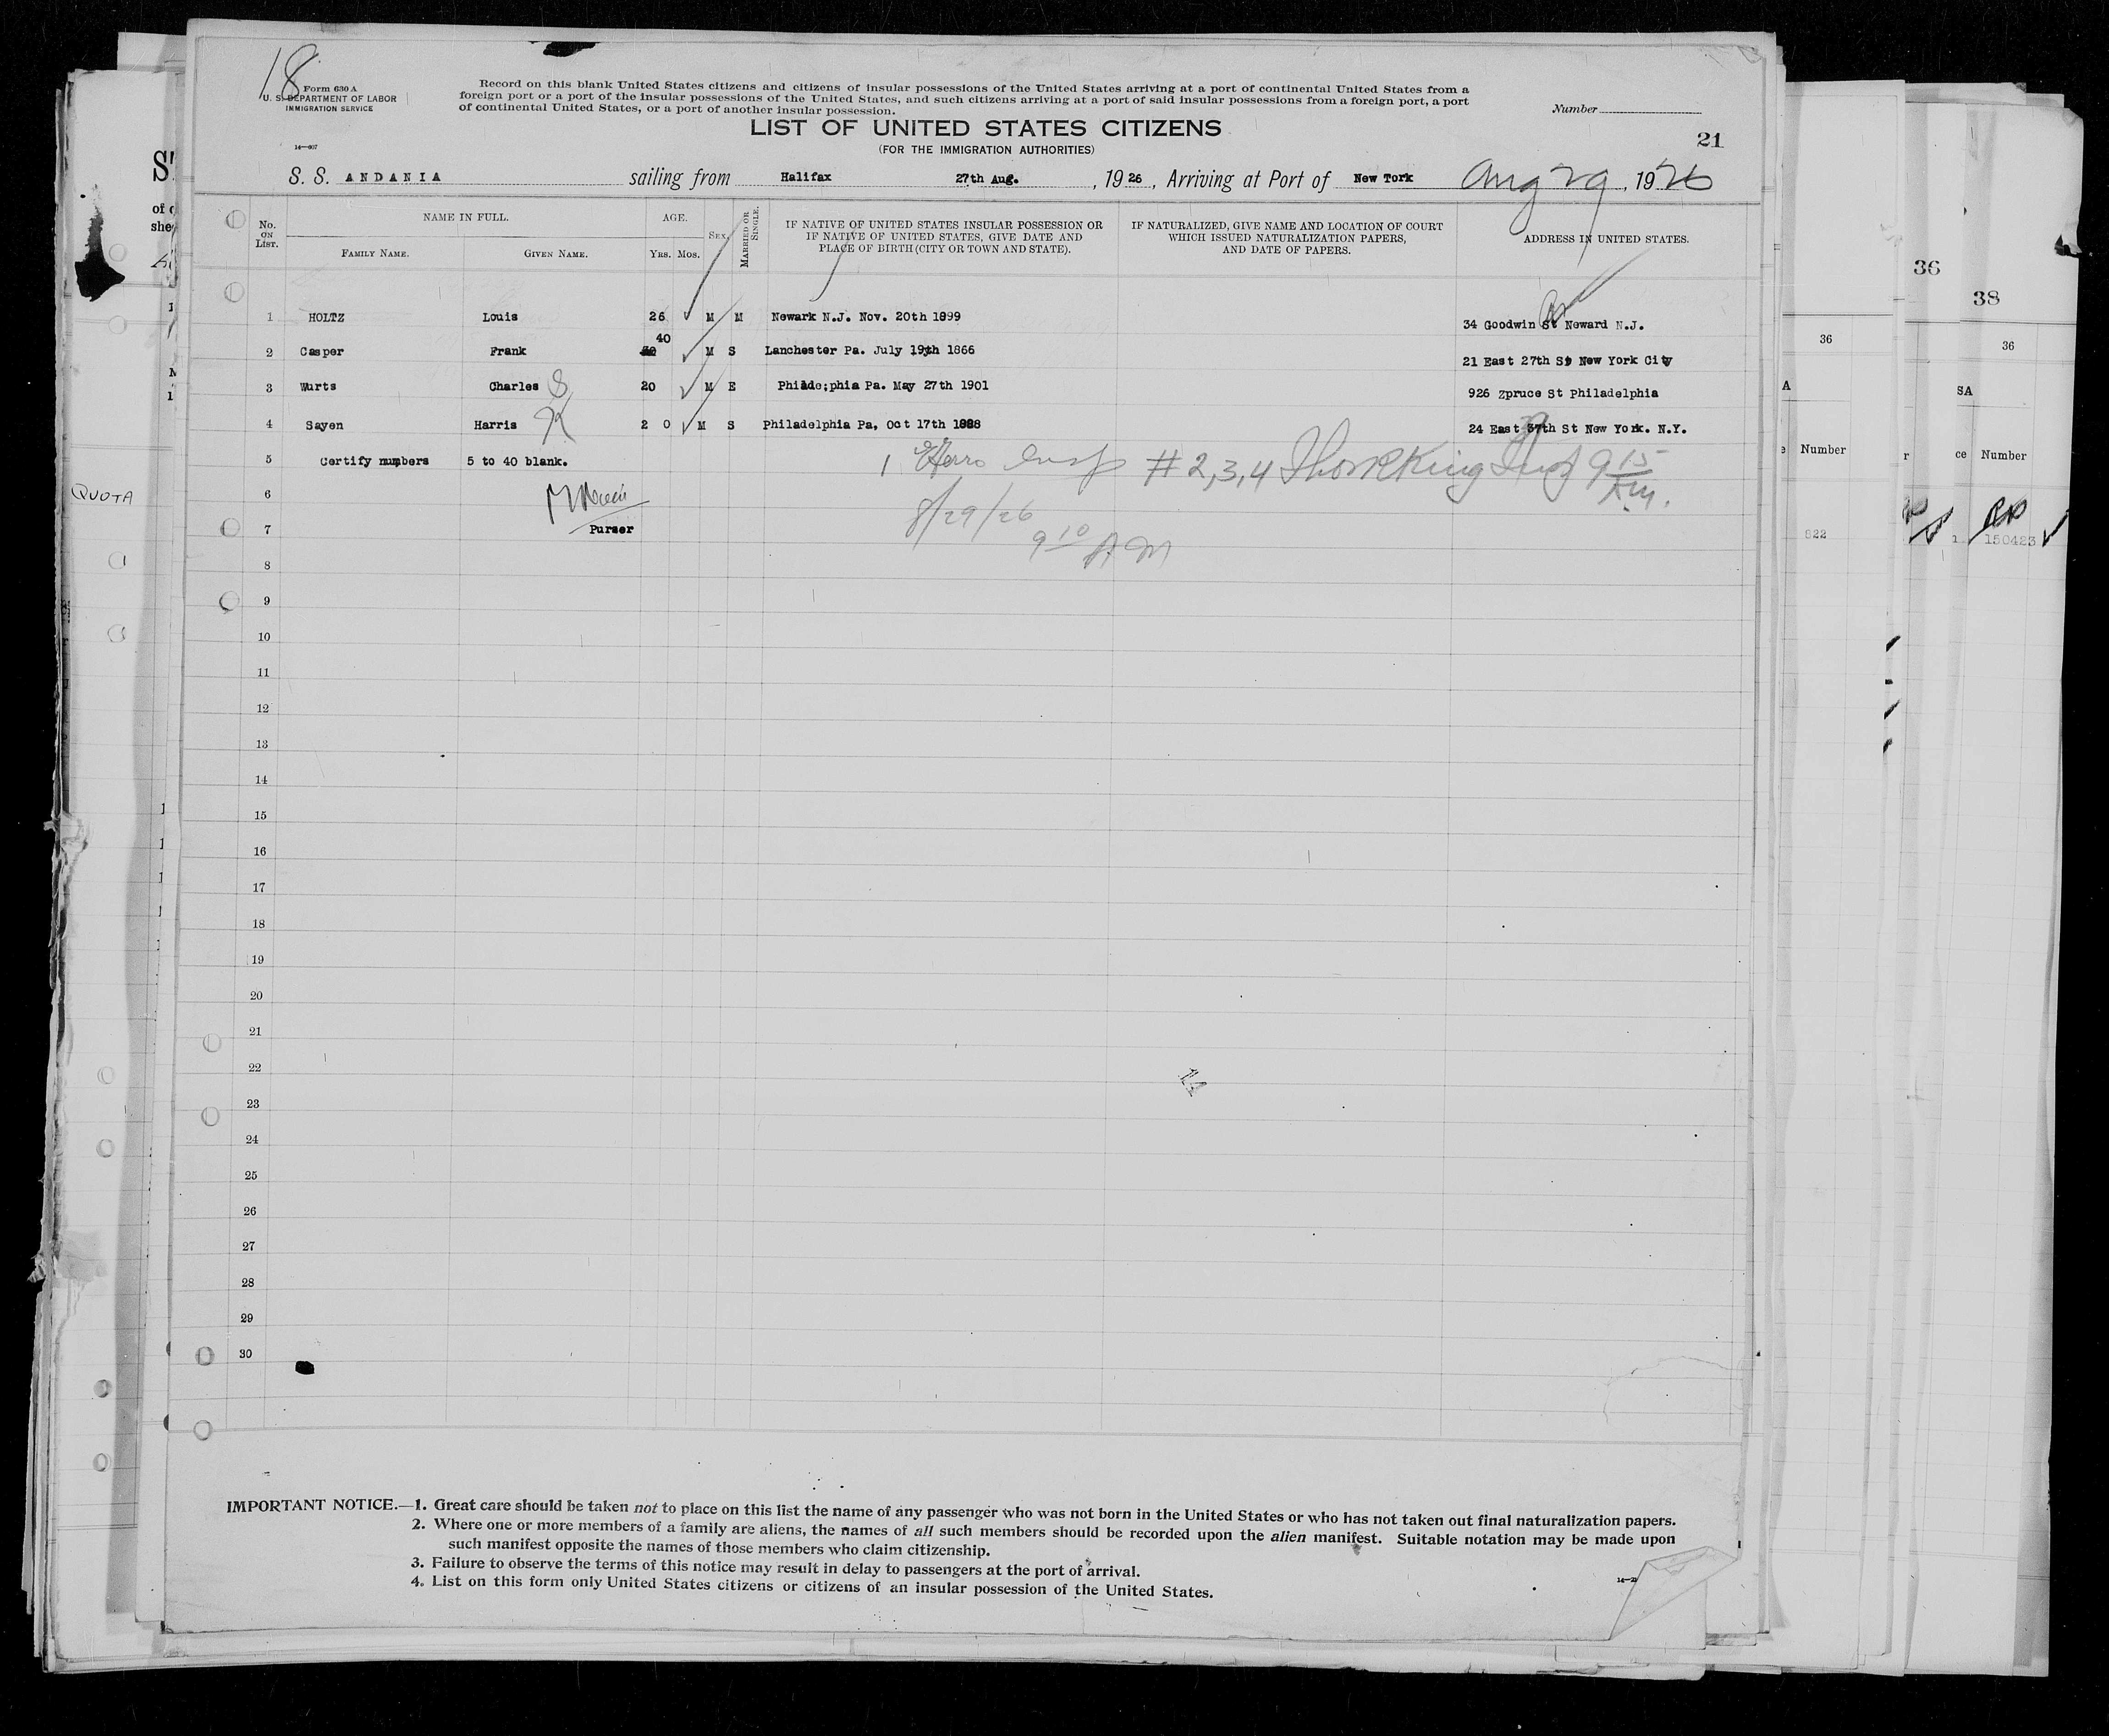 18
Form 630 A
U. S. DEPARTMENT OF LABOR
IMMIGRATION SERVICE
14—607
Record on this blank United States citizens and citizens of insular possessions of the United States arriving at a port of continental United States from a
foreign port or a port of the insular possessions of the United States, and such citizens arriving at a port of said insular possessions from a foreign port, a port
of continental United States, or a port of another insular possession.
Number
LIST OF UNITED STATES CITIZENS
(FOR THE IMMIGRATION AUTHORITIES)
21
S. S. ANDANIA sailing from Halifax 27th Aug. , 1926, Arriving at Port of New York Aug 29, 1926
No. ON LIST.
NAME IN FULL.
FAMILY NAME. GIVEN NAME.
AGE.
YRS. MOS.
SEX.
MARRIED OR SINGLE.
IF NATIVE OF UNITED STATES INSULAR POSSESSION OR
IF NATIVE OF UNITED STATES, GIVE DATE AND
PLACE OF BIRTH (CITY OR TOWN AND STATE).
IF NATURALIZED, GIVE NAME AND LOCATION OF COURT
WHICH ISSUED NATURALIZATION PAPERS,
AND DATE OF PAPERS.
ADDRESS IN UNITED STATES.
1 HOLTZ Louis 26 M M Newark N.J. Nov. 20th 1899 34 Goodwin St Neward N.J.
2 Casper Frank 40 M S Lanchester Pa. July 19th 1866 21 East 27th St New York City
3 Wurts Charles S 20 M E Philde;phia Pa. May 27th 1901 926 Zpruce St Philadelphia
4 Sayen Harris K 2 0 M S Philadelphia Pa, Oct 17th 1888 24 East 37th St New York. N.Y.
5 Certify numbers 5 to 40 blank.
1 Insp # 2,3,4 Insp 9 15 Am.
6
8/29/26
7 Purser
9 10 AM
8
9
10
11
12
13
14
15
16
17
18
19
20
21
22
23
24
25
26
27
28
29
30
IMPORTANT NOTICE.—1. Great care should be taken not to place on this list the name of any passenger who was not born in the United States or who has not taken out final naturalization papers.
2. Where one or more members of a family are aliens, the names of all such members should be recorded upon the alien manifest. Suitable notation may be made upon
such manifest opposite the names of those members who claim citizenship.
3. Failure to observe the terms of this notice may result in delay to passengers at the port of arrival.
4. List on this form only United States citizens or citizens of an insular possession of the United States.
QUOTA
36
38
36
36
SA
Number
ce Number
150423